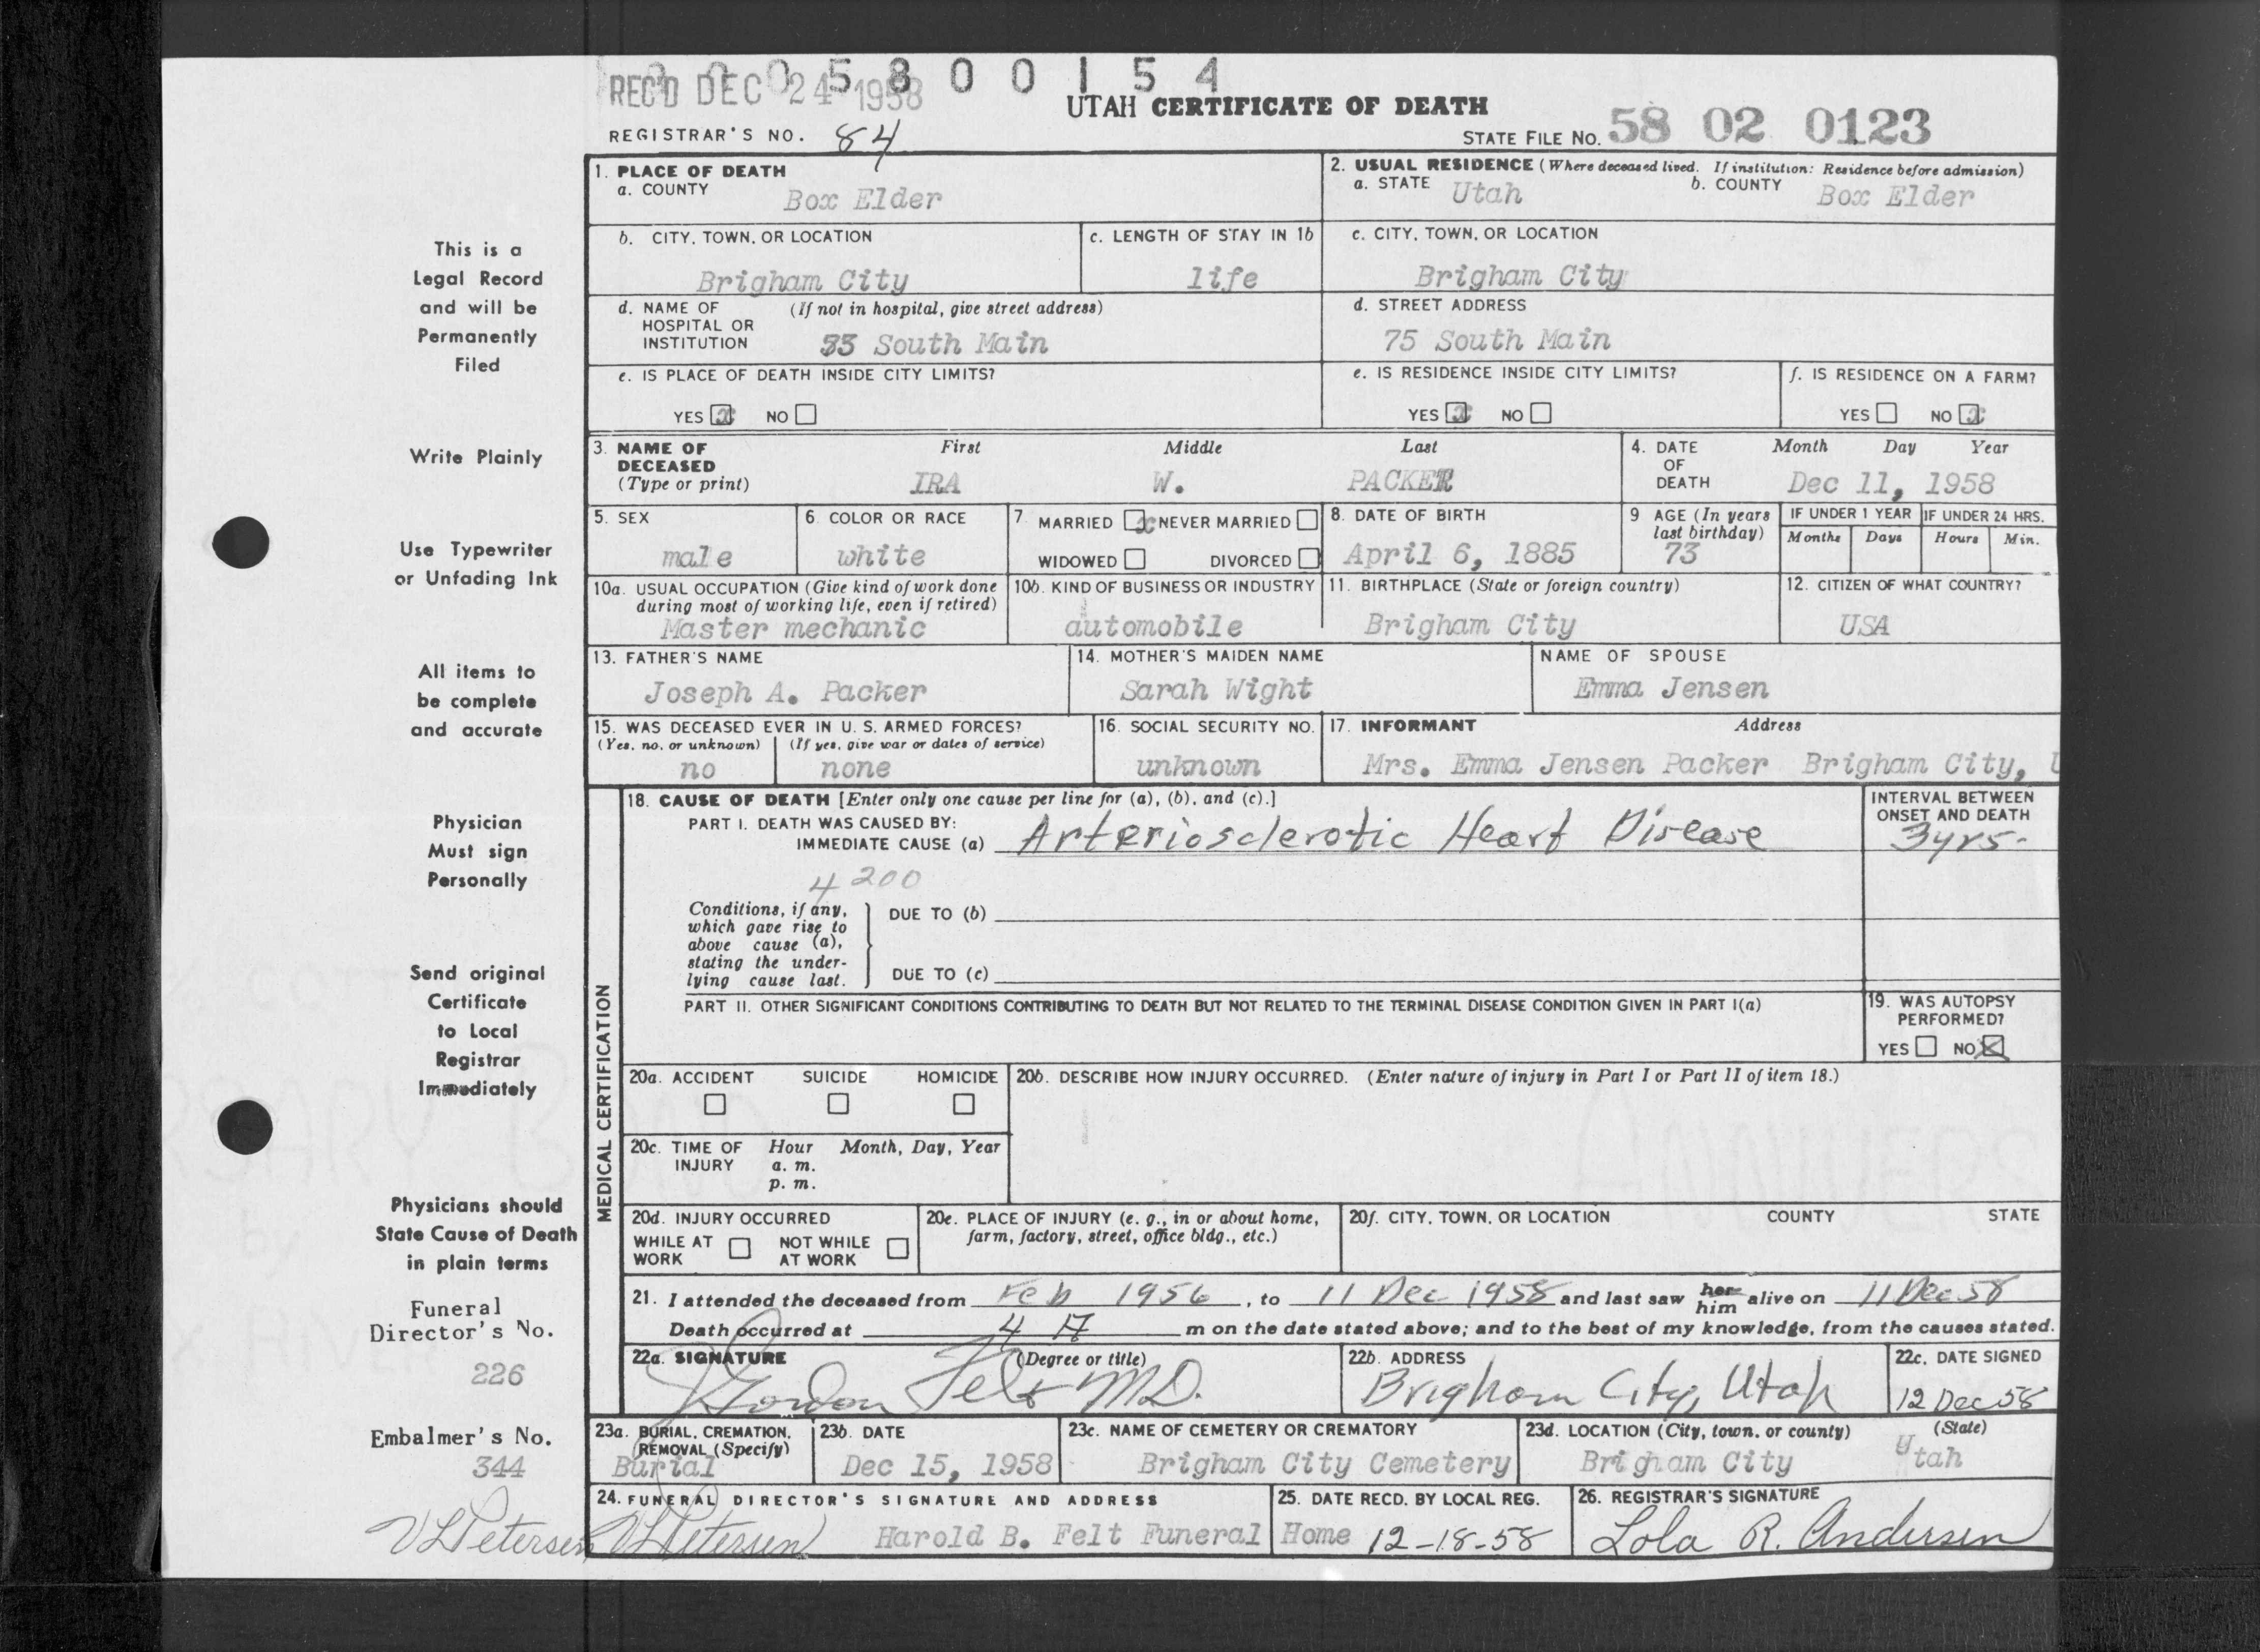 2 0 0 5 8 0 0 1 5 4
REC'D DEC 24 1958
UTAH CERTIFICATE OF DEATH
REGISTRAR'S NO. 84
STATE FILE NO. 58 02 0123
This is a
Legal Record
and will be
Permanently
Filed
Write Plainly
Use Typewriter
or Unfading Ink
All items to
be complete
and accurate
Physician
Must sign
Personally
Send original
Certificate
to Local
Registrar
Immediately
Physicians should
State Cause of Death
in plain terms
Funeral
Director's No.
226
Embalmer's No.
344
V L Petersen
1. PLACE OF DEATH
a. COUNTY Box Elder
2. USUAL RESIDENCE (Where deceased lived. If institution: Residence before admission)
a. STATE Utah b. COUNTY Box Elder
b. CITY, TOWN, OR LOCATION
Brigham City
c. LENGTH OF STAY IN 1b
life
c. CITY, TOWN, OR LOCATION
Brigham City
d. NAME OF (If not in hospital, give street address)
HOSPITAL OR
INSTITUTION South Main
d. STREET ADDRESS
75 South Main
e. IS PLACE OF DEATH INSIDE CITY LIMITS?
YES x NO
e. IS RESIDENCE INSIDE CITY LIMITS?
YES x NO
f. IS RESIDENCE ON A FARM?
YES NO x
3. NAME OF DECEASED (Type or print)
First Middle Last
IRA W. PACKER
4. DATE OF DEATH
Month Day Year
Dec 11, 1958
5. SEX
male
6. COLOR OR RACE
white
7. MARRIED x NEVER MARRIED
WIDOWED DIVORCED
8. DATE OF BIRTH
April 6, 1885
9 AGE (In years
last birthday)
73
IF UNDER 1 YEAR IF UNDER 24 HRS.
Months Days Hours Min.
10a. USUAL OCCUPATION (Give kind of work done
during most of working life, even if retired)
Master mechanic
10b. KIND OF BUSINESS OR INDUSTRY
automobile
11. BIRTHPLACE (State or foreign country)
Brigham City
12. CITIZEN OF WHAT COUNTRY?
USA
13. FATHER'S NAME
Joseph A. Packer
14. MOTHER'S MAIDEN NAME
Sarah Wight
NAME OF SPOUSE
Emma Jensen
15. WAS DECEASED EVER IN U. S. ARMED FORCES?
(Yes, no, or unknown) (If yes, give war or dates of service)
no none
16. SOCIAL SECURITY NO.
unknown
17. INFORMANT Address
Mrs. Emma Jensen Packer Brigham City, U
MEDICAL CERTIFICATION
18. CAUSE OF DEATH [Enter only one cause per line for (a), (b), and (c).]
PART I. DEATH WAS CAUSED BY:
IMMEDIATE CAUSE (a) Arteriosclerotic Heart Disease
INTERVAL BETWEEN
ONSET AND DEATH
3yrs-
4200
Conditions, if any,
which gave rise to
above cause (a),
stating the under-
lying cause last.
DUE TO (b)
DUE TO (c)
PART II. OTHER SIGNIFICANT CONDITIONS CONTRIBUTING TO DEATH BUT NOT RELATED TO THE TERMINAL DISEASE CONDITION GIVEN IN PART I(a)
19. WAS AUTOPSY
PERFORMED?
YES NO X
20a. ACCIDENT SUICIDE HOMICIDE
20b. DESCRIBE HOW INJURY OCCURRED. (Enter nature of injury in Part I or Part II of item 18.)
20c. TIME OF INJURY
Hour Month, Day, Year
a. m.
p. m.
20d. INJURY OCCURRED
WHILE AT WORK NOT WHILE AT WORK
20e. PLACE OF INJURY (e. g., in or about home,
farm, factory, street, office bldg., etc.)
20f. CITY, TOWN, OR LOCATION COUNTY STATE
21. I attended the deceased from Feb 1956, to 11 Dec 1958 and last saw her him alive on 11 Dec 58
Death occurred at 4 A m on the date stated above; and to the best of my knowledge, from the causes stated.
22a. SIGNATURE (Degree or title)
J Gordon Felt MD.
22b. ADDRESS
Brigham City, Utah
22c. DATE SIGNED
12 Dec 58
23a. BURIAL, CREMATION,
REMOVAL (Specify)
Burial
23b. DATE
Dec 15, 1958
23c. NAME OF CEMETERY OR CREMATORY
Brigham City Cemetery
23d. LOCATION (City, town, or county) (State)
Brigham City Utah
24. FUNERAL DIRECTOR'S SIGNATURE AND ADDRESS
V L Petersen Harold B. Felt Funeral Home
25. DATE RECD. BY LOCAL REG.
12-18-58
26. REGISTRAR'S SIGNATURE
Lola R. Andersen